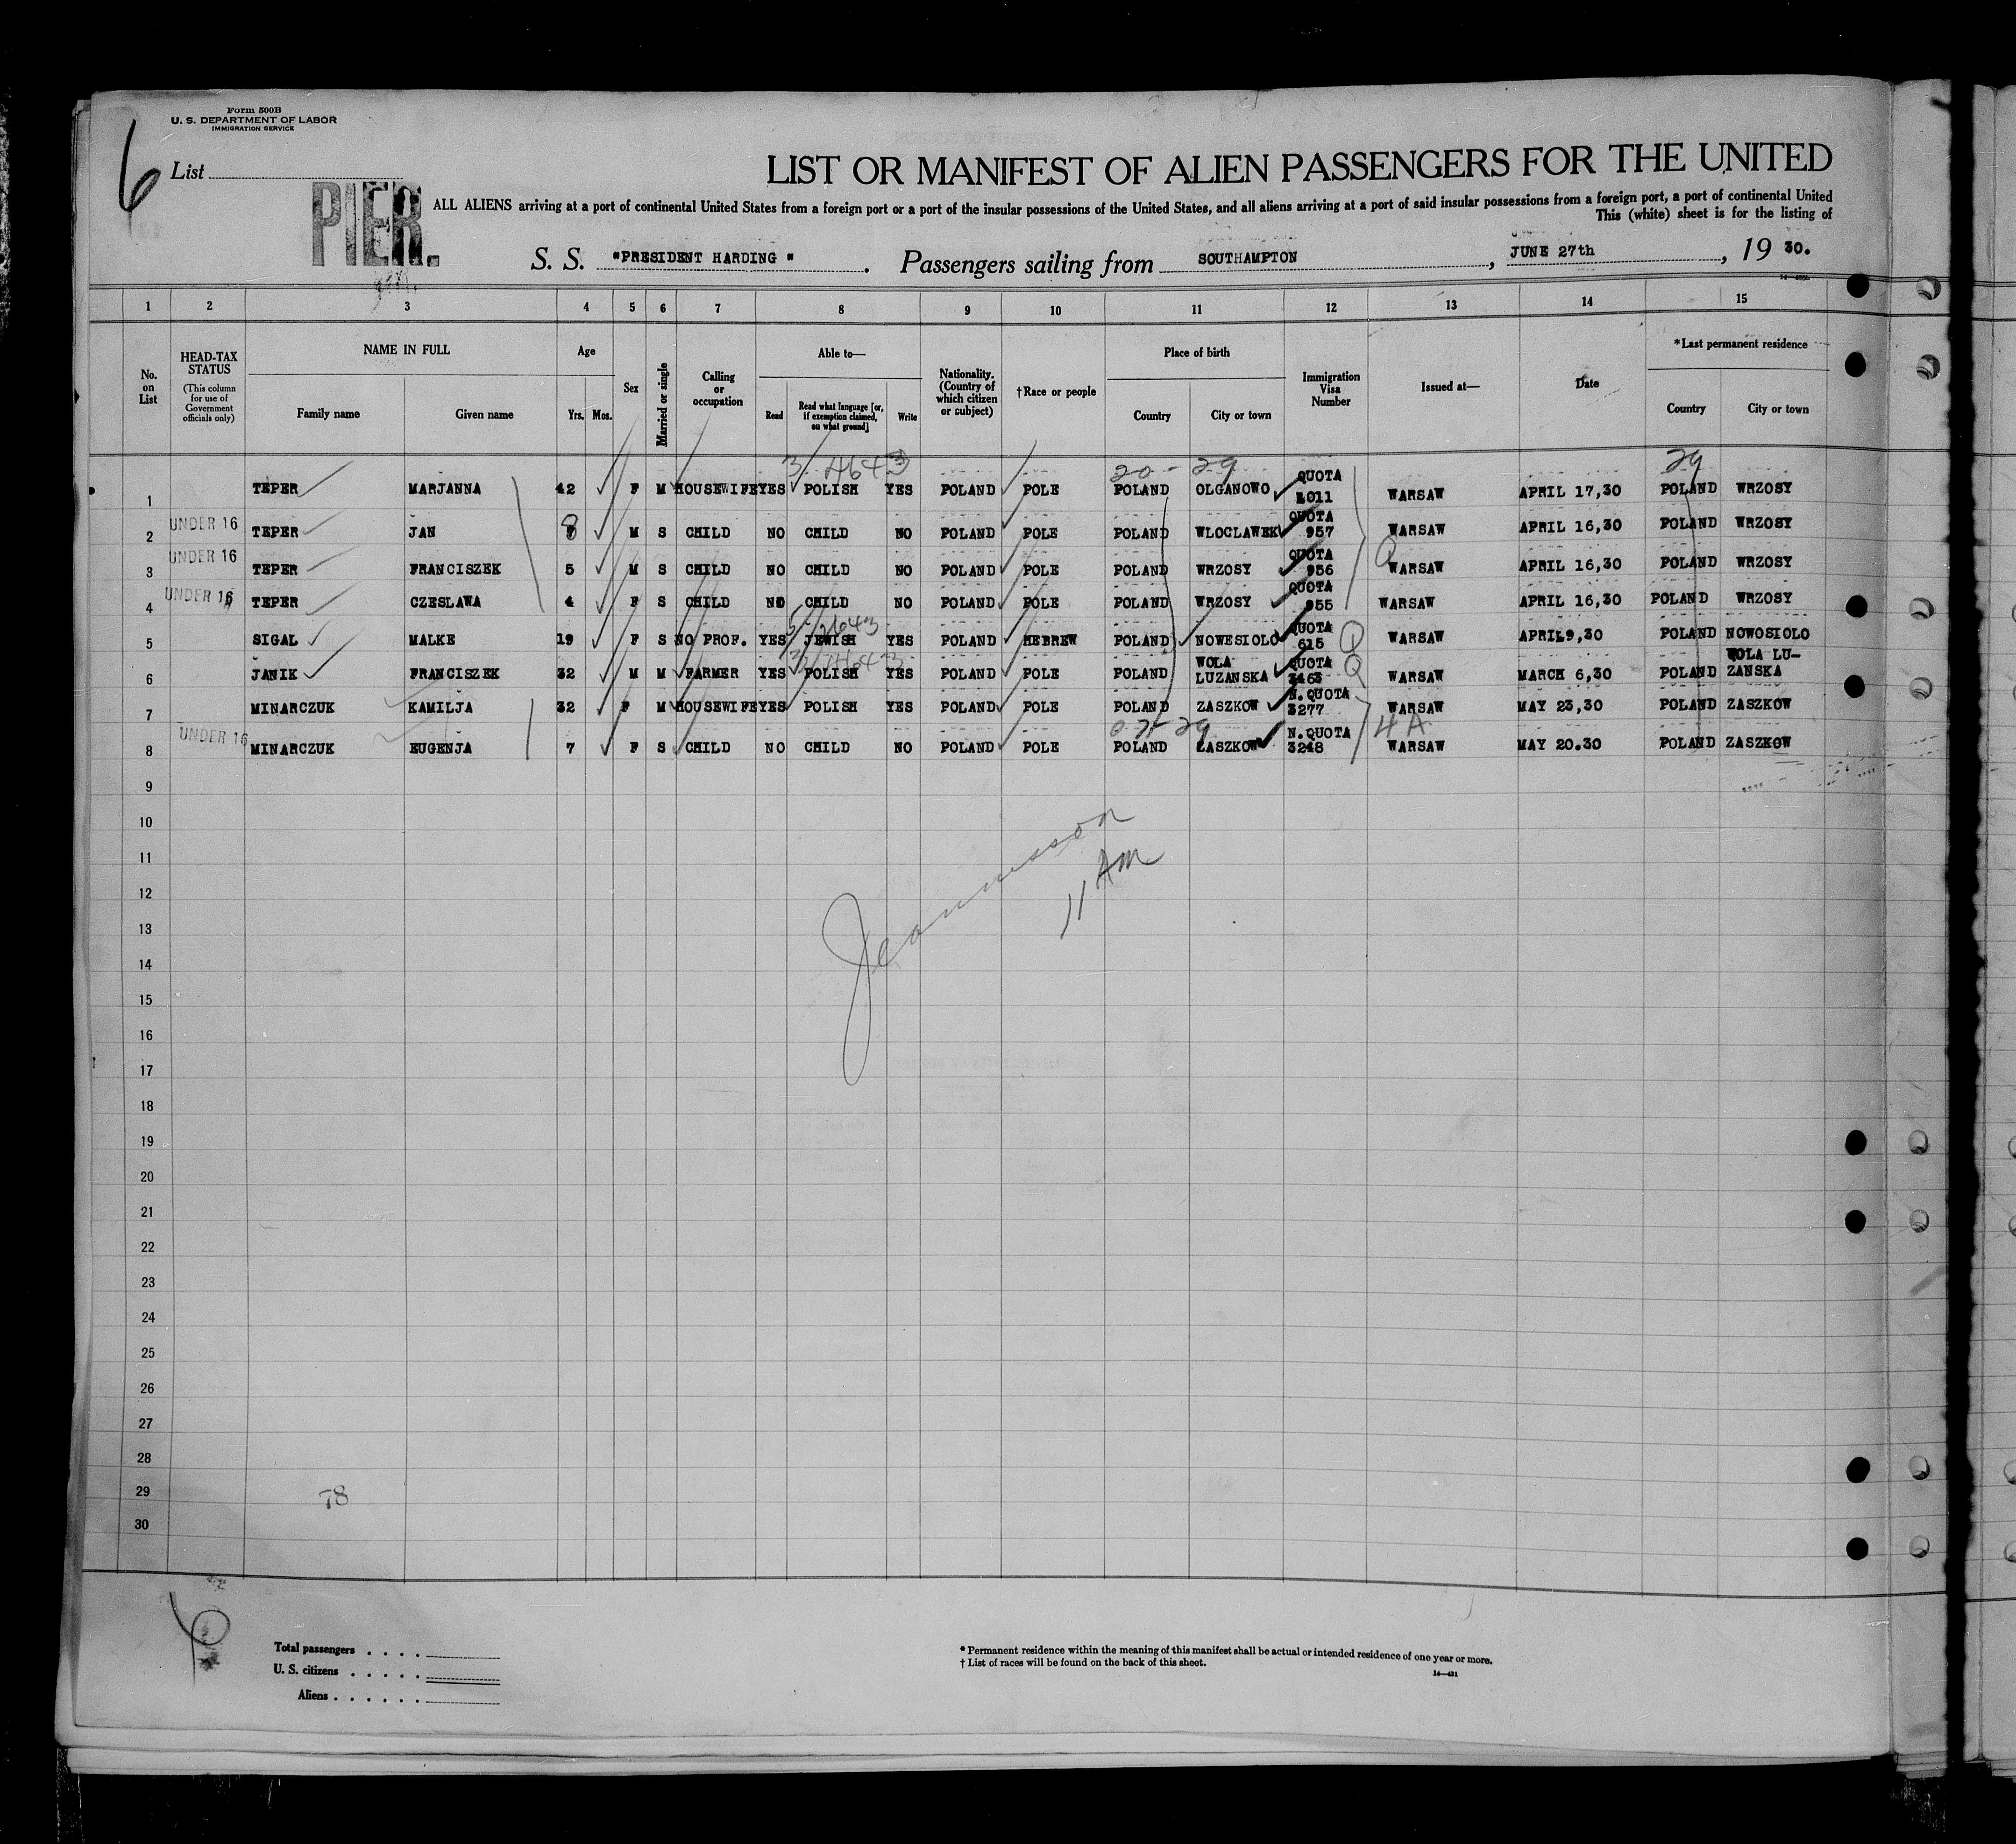 Form 500B
U. S. DEPARTMENT OF LABOR
IMMIGRATION SERVICE
6
List
PIER.
LIST OR MANIFEST OF ALIEN PASSENGERS FOR THE UNITED
ALL ALIENS arriving at a port of continental United States from a foreign port or a port of the insular possessions of the United States, and all aliens arriving at a port of said insular possessions from a foreign port, a port of continental United
This (white) sheet is for the listing of
S. S. "PRESIDENT HARDING". Passengers sailing from SOUTHAMPTON, JUNE 27th, 19 30.
1 2 3 4 5 6 7 8 9 10 11 12 13 14 15
No. on List
HEAD-TAX STATUS
(This column for use of Government officials only)
NAME IN FULL
Family name Given name
Age
Yrs. Mos.
Sex
Married or single
Calling or occupation
Able to—
Read
Read what language [or, if exemption claimed, on what ground]
Write
Nationality. (Country of which citizen or subject)
†Race or people
Place of birth
Country City or town
Immigration Visa Number
Issued at—
Date
*Last permanent residence
Country City or town
20 - 29 29
1 TEPER MARJANNA 42 F M HOUSEWIFE YES POLISH YES POLAND POLE POLAND OLGANOWO QUOTA 1011 WARSAW APRIL 17,30 POLAND WRZOSY
2 UNDER 16 TEPER JAN 8 M S CHILD NO CHILD NO POLAND POLE POLAND WLOCLAWEK QUOTA 957 WARSAW APRIL 16,30 POLAND WRZOSY
3 UNDER 16 TEPER FRANCISZEK 5 M S CHILD NO CHILD NO POLAND POLE POLAND WRZOSY QUOTA 956 Q WARSAW APRIL 16,30 POLAND WRZOSY
4 UNDER 16 TEPER CZESLAWA 4 F S CHILD NO CHILD NO POLAND POLE POLAND WRZOSY QUOTA 955 WARSAW APRIL 16,30 POLAND WRZOSY
5 SIGAL MALKE 19 F S NO PROF. YES JEWISH YES POLAND HEBREW POLAND NOWESIOLO QUOTA 615 Q WARSAW APRIL9,30 POLAND NOWOSIOLO
6 JANIK FRANCISZEK 32 M M FARMER YES POLISH YES POLAND POLE POLAND WOLA LUZANSKA QUOTA 3463 Q WARSAW MARCH 6,30 POLAND WOLA LU-ZANSKA
7 MINARCZUK KAMILJA 32 F M HOUSEWIFE YES POLISH YES POLAND POLE POLAND ZASZKOW N.QUOTA 3277 WARSAW MAY 23,30 POLAND ZASZKOW
4 A
8 UNDER 16 MINARCZUK EUGENJA 7 F S CHILD NO CHILD NO POLAND POLE POLAND ZASZKOW N.QUOTA 3248 WARSAW MAY 20.30 POLAND ZASZKOW
9
10
11
11 AM
12
13
14
15
16
17
18
19
20
21
22
23
24
25
26
27
28
29
78
30
Total passengers . . . .
U. S. citizens . . . . .
Aliens . . . . . .
* Permanent residence within the meaning of this manifest shall be actual or intended residence of one year or more.
† List of races will be found on the back of this sheet.
14—431